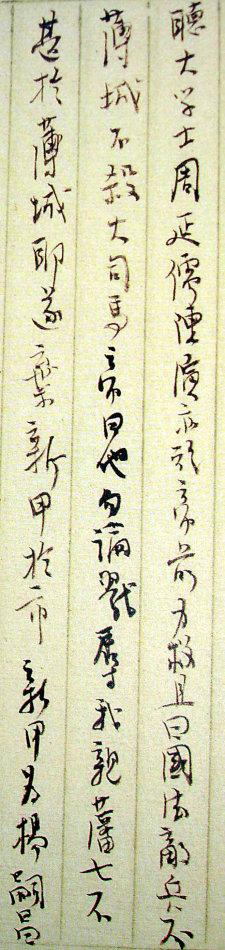 聽大学士周延儒陳演亦於帝前力救且曰國法敵兵不
薄城不殺大司馬帝曰他勿論戮辱我親藩七不
甚於薄城耶遂棄新甲於市新甲為楊嗣昌